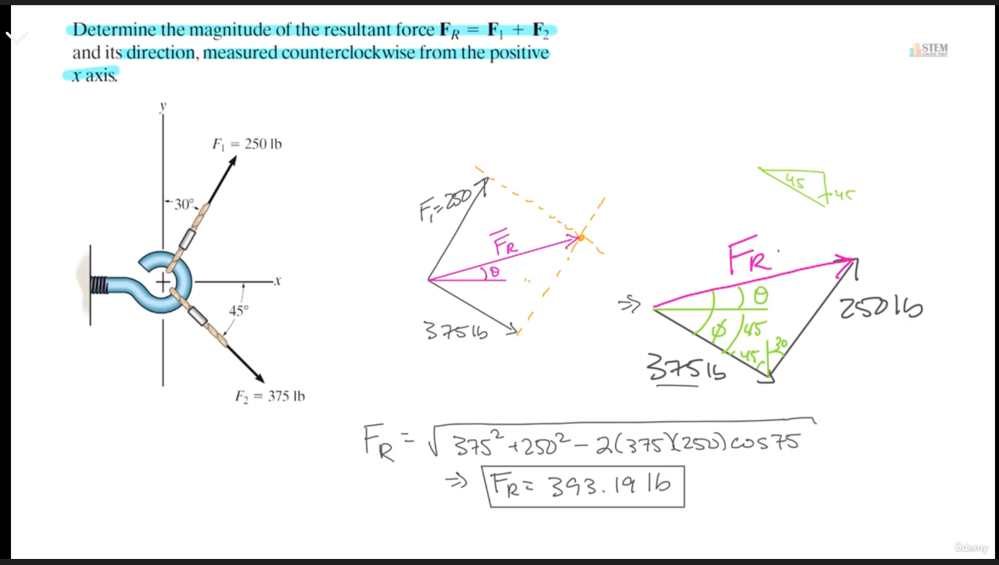 Determine the magnitude of the resultant force F_R = F₁ + F₂
and its direction, measured counterclockwise from the positive
x axis.
STEM
y
F₁ = 250 lb
30°
x
45°
F₂ = 375 lb
F₁=250
F_R
θ
375 lb
45
45
⇒
F_R
θ
φ
45
45
30
250 lb
375 lb
F_R = √375² + 250² − 2(375)(250) cos 75
⇒ F_R = 393.19 lb
ûdemy